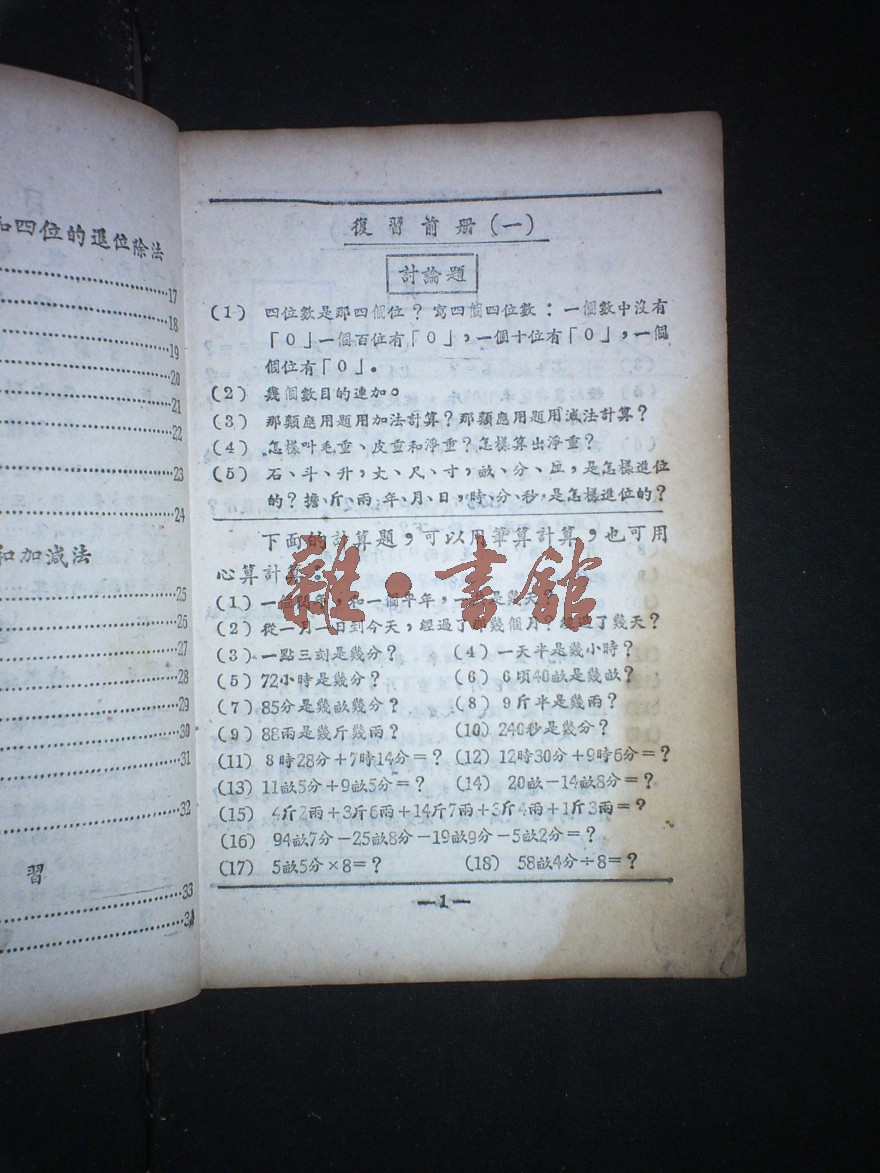 和四位的退位除法
17
18
19
20
21
22
23
24
和加減法
25
26
27
28
29
30
31
32
習
33
34
復習前册(一)
討論題
(1) 四位數是那四個位?寫四個四位數:一個數中沒有
「0」一個百位有「0」,一個十位有「0」,一個
個位有「0」。
(2) 幾個數目的連加。
(3) 那類應用題用加法計算?那類應用題用減法計算?
(4) 怎樣叫毛重、皮重和淨重?怎樣算出淨重?
(5) 石、斗、升,丈、尺、寸,畝、分、厘,是怎樣進位
的?擔、斤、兩、年、月、日,時、分、秒,是怎樣進位的?
下面的計算題,可以用筆算計算,也可用
心算計算:
(1) 一個閏年,和一個平年,一共是幾天?
(2) 從一月一日到今天,經過了那幾個月?經過了幾天?
(3) 一點三刻是幾分? (4) 一天半是幾小時?
(5) 72小時是幾分? (6) 6頃40畝是幾畝?
(7) 85分是幾畝幾分? (8) 9斤半是幾兩?
(9) 88兩是幾斤幾兩? (10) 240秒是幾分?
(11) 8時28分+7時14分=? (12) 12時30分+9時6分=?
(13) 11畝5分+9畝5分=? (14) 20畝-14畝8分=?
(15) 4斤2兩+3斤6兩+14斤7兩+3斤4兩+1斤3兩=?
(16) 94畝7分-25畝8分-19畝9分-5畝2分=?
(17) 5畝5分×8=? (18) 58畝4分÷8=?
—1—
雜·書館